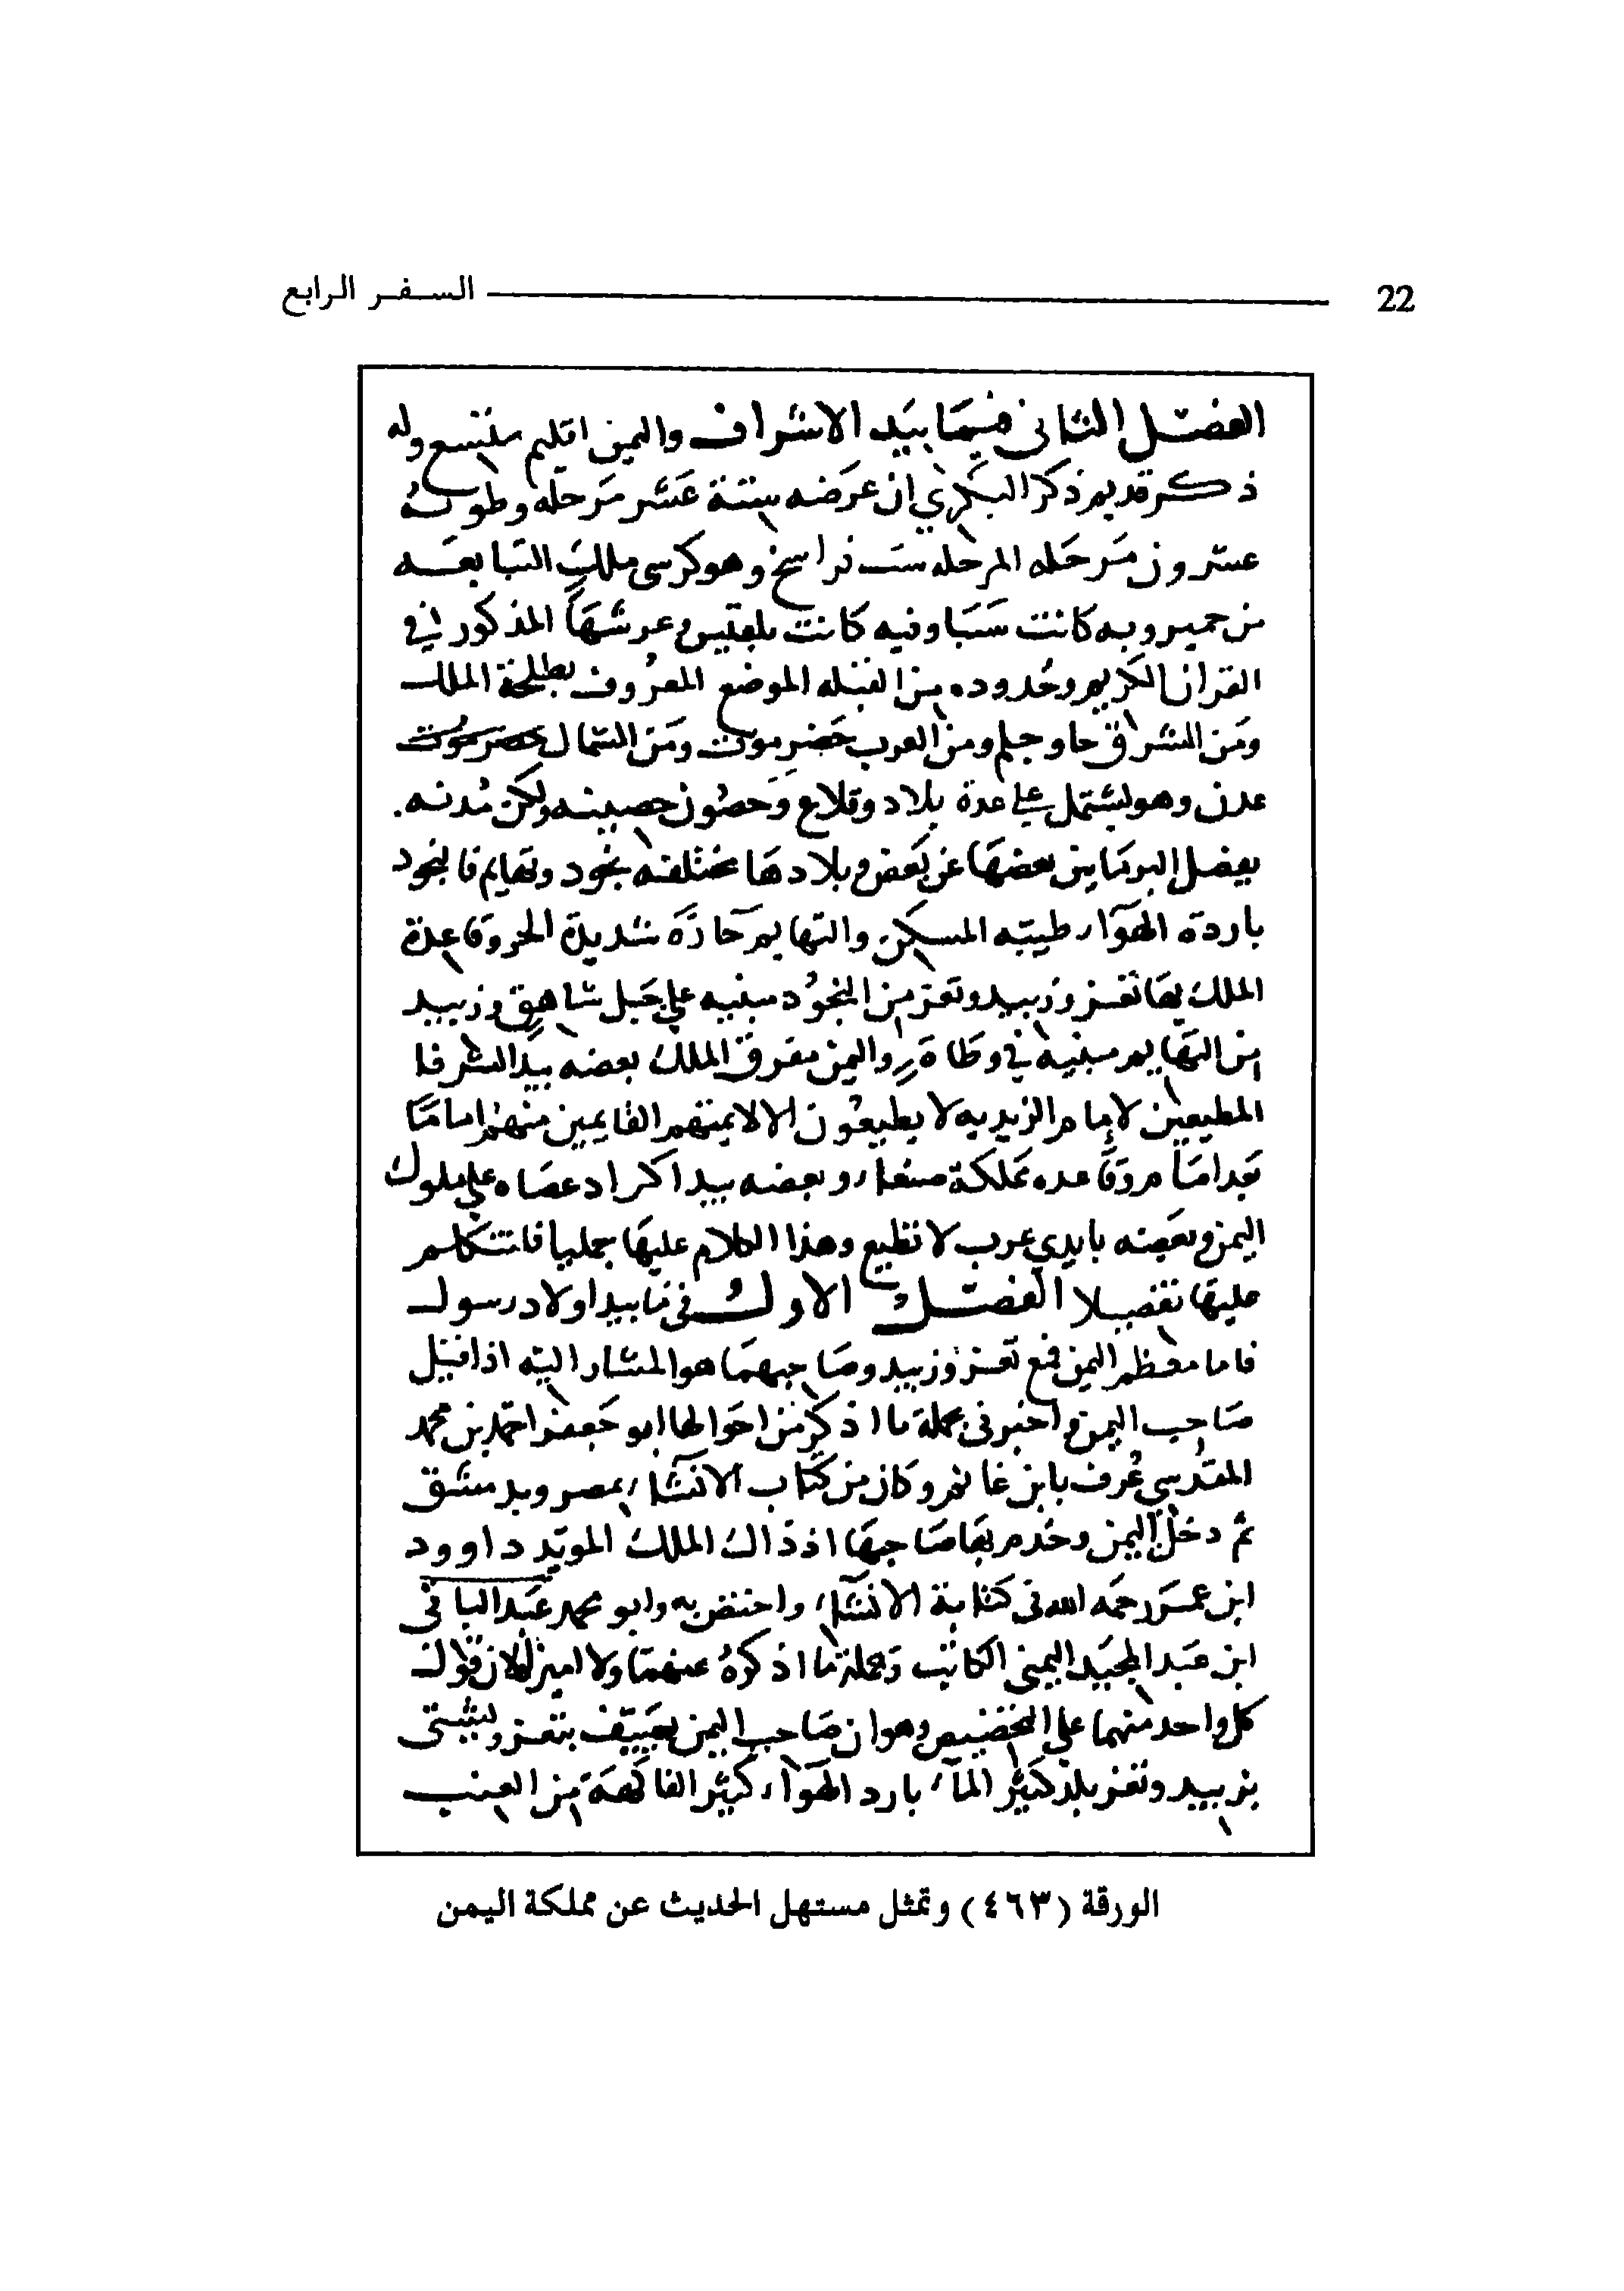 22 السفر الرابع
الفصل الثانى فيما بيد الاشراف واليمن اقليم متسع وله
ذكر قديم ذكر البكري ان عرضه ستة عشر مرحله وطوله
عشرون مرحله المرحله ست فراسخ وهو كرسى ملك التبابعه
من حمير وبه كانت سبا وفيه كانت بلقيس وعرشها المذكور في
القران الكريم وحدوده من القبله الموضع المعروف بطلحة الملك
ومن الشرق حا وحلم ومن الغرب حضرموت ومن الشمال حضرموت
عدن وهو يشتمل على عدة بلاد وقلاع وحصون حصينه ولكن مدنه
يفصل البر ما بين بعضها عن بعض وبلادها مختلفه نجود وتهايم فالنجود
باردة الهوآء طيبه المسكن والتهايم حارّة شديدة الحر وقاعدة
الملك بها تعز وزبيد وتعز من النجود مبنيه على جبل شاهق وزبيد
من التهايم مبنية في وطاة واليمن مفرق الملك بعضه بيد الشرفا
المطيعين لامام الزيديه لا يطيعون الا لايمتهم القايمين منهم اماما
بعد امام وقاعده مملكة صنعاء وبعضه بيد اكراد عصاه على ملوك
اليمن وبعضه بايدي عرب لا تطيع وهذا الكلام عليها جمليا فلنتكلم
عليها تفصيلا الفصل الاول فى ما بيد اولاد رسول
فاما معظم اليمن فمع تعز وزبيد وصاحبهما هو المشار اليه اذا قيل
صاحب اليمن واخبرنى بجملة ما اذكر من احوالها ابو جعفر احمد بن محمد
المقدسي عُرف بابن غانم وكان من كتاب الانشآء بمصر وبدمشق
ثم دخل اليمن وخدم بها صاحبها اذ ذاك الملك المويد داوود
ابن عمر رحمه الله فى كتابة الانشآء واختص به وابو محمد عبد الباقى
ابن عبد المجيد اليمنى الكاتب وجملة ما اذكره عنهما ولا اميز الان قول
كل واحد منهما على التخصيص وهو ان صاحب اليمن يصيف بتعز ويشتى
بزبيد وتعز بلد كثير المآء بارد الهوآء كثير الفاكهة من العنب
الورقة (٤٦٣) وتمثل مستهل الحديث عن مملكة اليمن